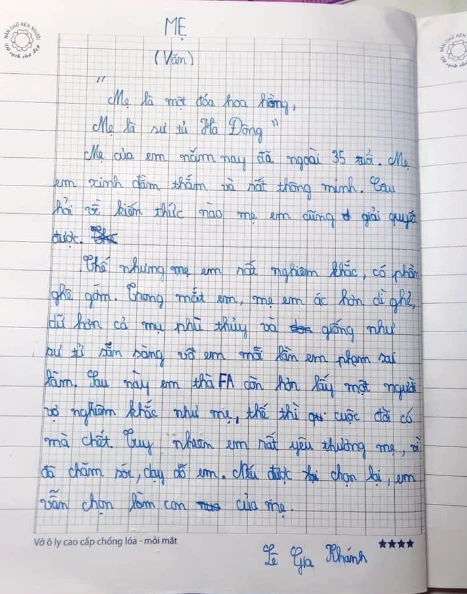 NÉT CHỮ NẾT NGƯỜI
MẸ
(Văn)
"
Mẹ là một đóa hoa hồng,
Mẹ là sư tử Hà Đông"
Mẹ của em năm nay đã ngoài 35 tuổi. Mẹ
em xinh đằm thắm và rất thông minh. Câu
hỏi về kiến thức nào mẹ em cũng giải quyết
được.
Thế nhưng mẹ em rất nghiêm khắc, có phần
ghê gớm. Trong mắt em, mẹ em ác hơn dì ghẻ,
dữ hơn cả mụ phù thủy và giống như
sư tử sẵn sàng vồ em mỗi lần em phạm sai
lầm. Sau này em thà FA còn hơn lấy một người
vợ nghiêm khắc như mẹ, thế thì cuộc đời có
mà chết. Tuy nhiên em rất yêu thương mẹ, vì
đã chăm sóc, dạy dỗ em. Nếu được chọn lại, em
vẫn chọn làm con của mẹ.
Vở ô ly cao cấp chống lóa - mỏi mắt
Lê Gia Khánh